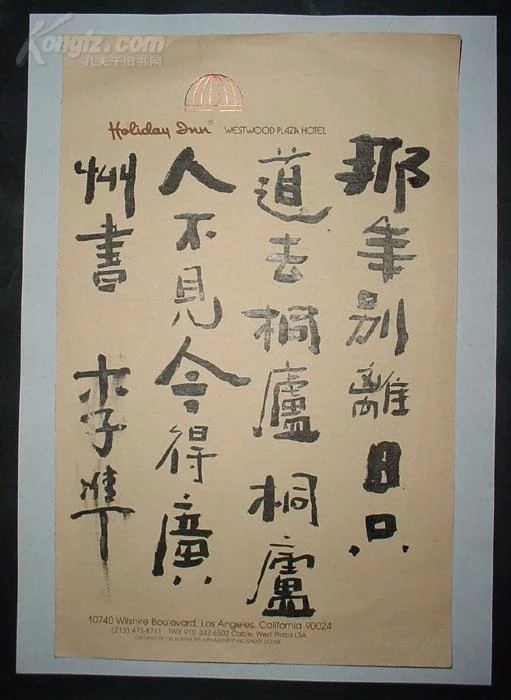 Kongfz.com
孔夫子旧书网
Holiday Inn® WESTWOOD PLAZA HOTEL
那年别離日只
道去桐廬桐廬
人不見今得廣
州書 李準
10740 Wilshire Boulevard, Los Angeles, California 90024
(213) 475-8711 TWX 910-342-6502 Cable, West Plaza LSA